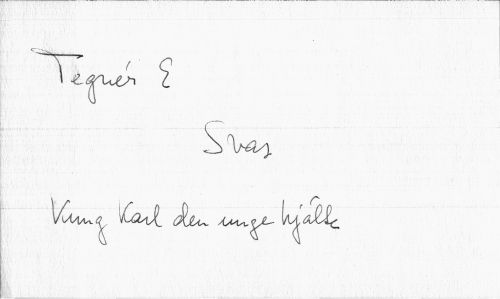 Tegnér E
Svar
Kung Karl den unge hjälte